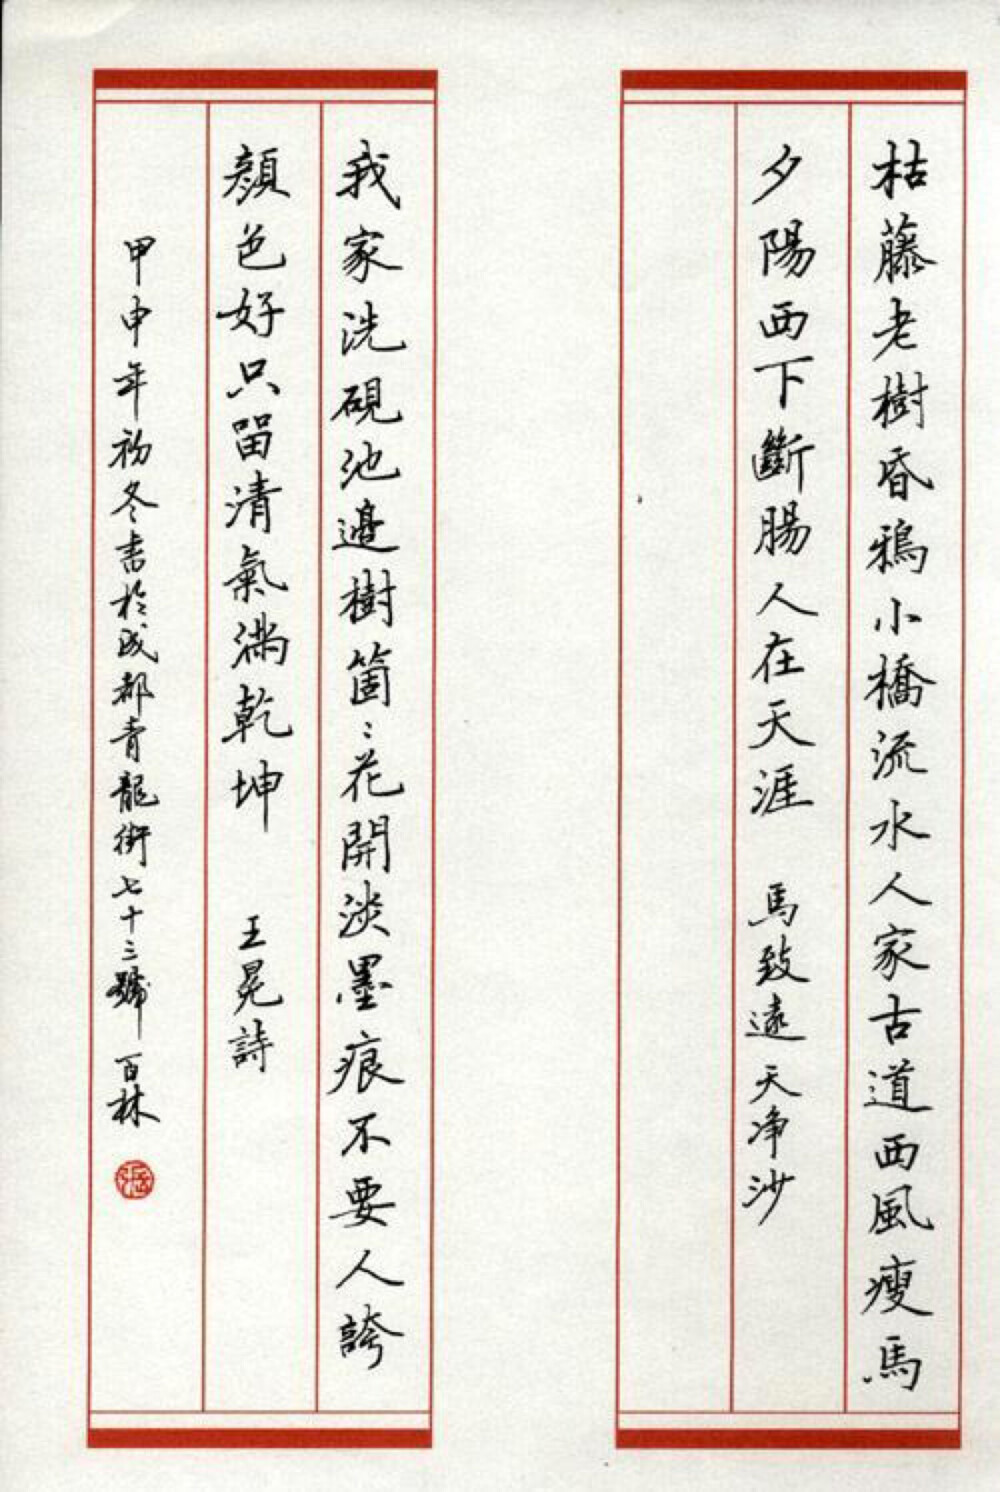 枯藤老樹昏鴉小橋流水人家古道西風瘦馬
夕陽西下斷腸人在天涯 馬致遠 天净沙
我家洗硯池邊樹箇〻花開淡墨痕不要人誇
顏色好只留清氣滿乾坤 王冕詩
甲申年初冬書於成都青龍街七十三號 百林
張